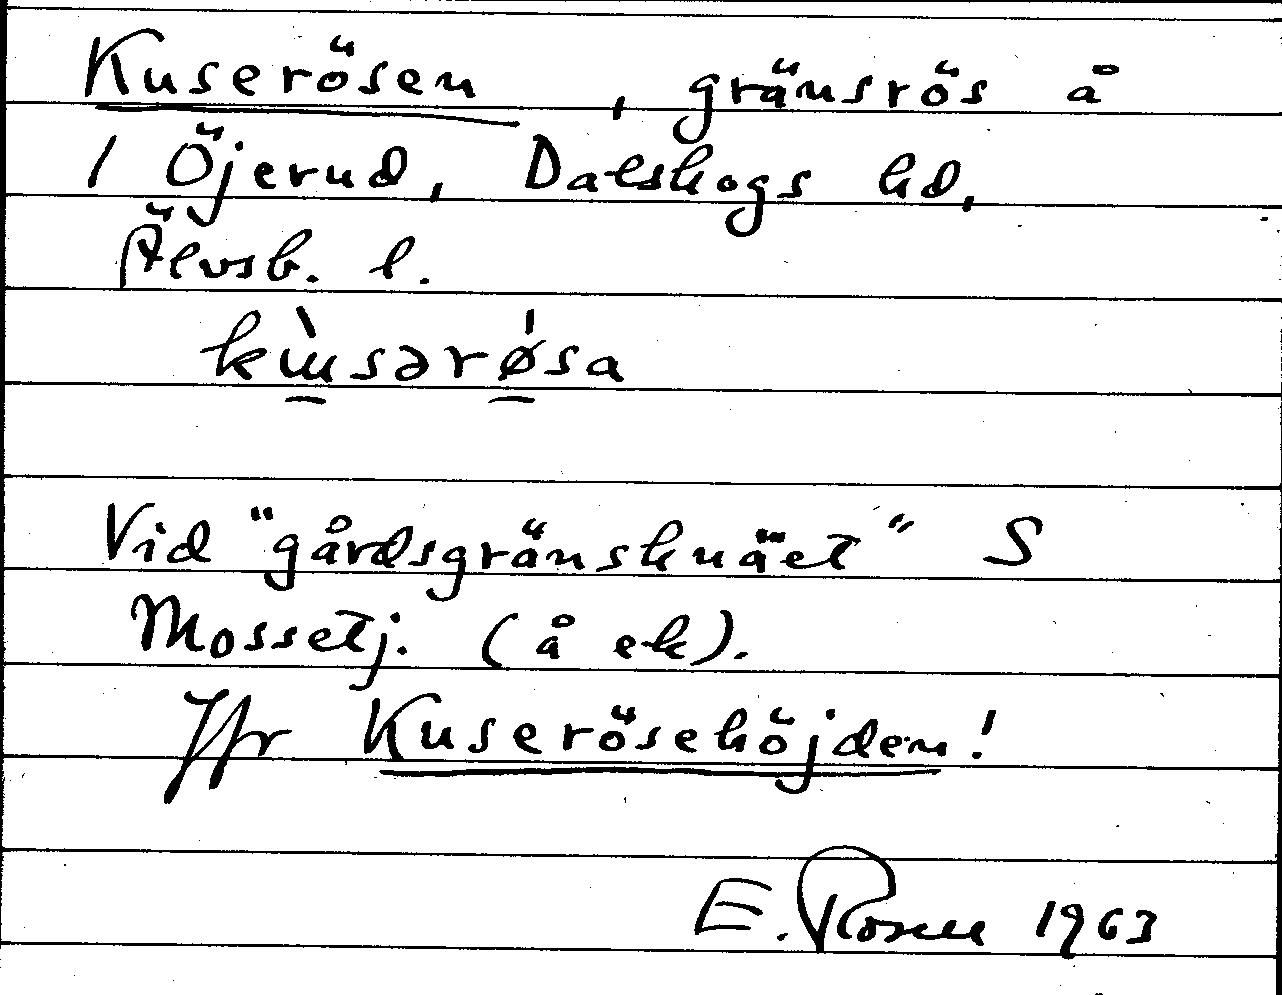 Kuserösen, gränsrös å
1 Öjerud, Dalskogs hd,
Älvsb. l.
kɯ̀sərǿsa
Vid "gårdsgränsknäet" S
Mossetj. (å ek).
Jfr Kuserösehöjden!
E. Rosen 1963